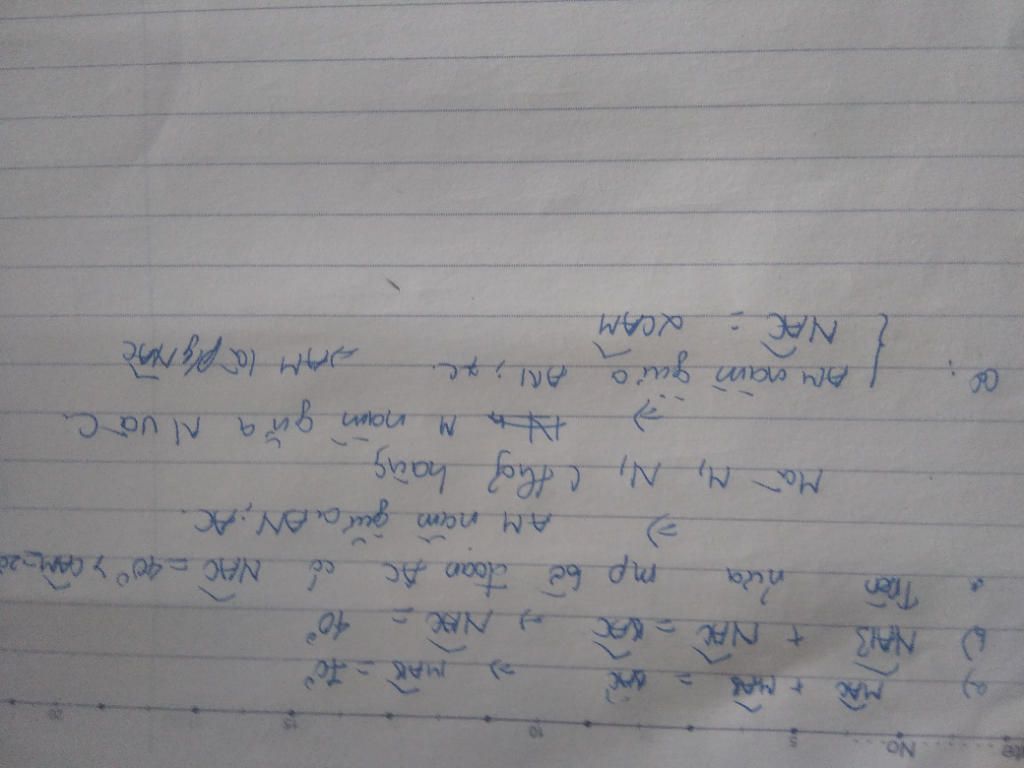 No
5 10 15 20
a) MAC + MAB = BAC ⇒ MAB = 70°
b) NAB + NAC = BAC ⇒ NAC = 40°
* Trên nửa mp bờ đoạn AC có NAC = 40° > CAM = 20
⇒ AM nằm giữa AN; AC.
Mà M, N, C thg hàng
⇒ M nằm giữa N và C.
Có: { AM nằm giữa AN; AC. ⇒ AM là p/g NAC
NAC = 2CAM